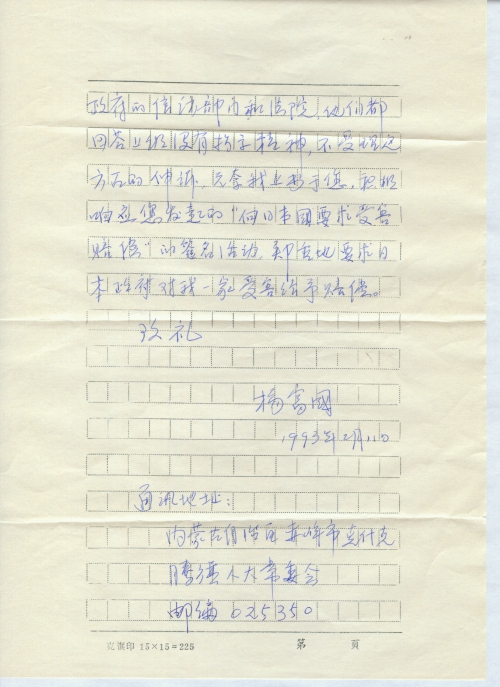 政府的信访部门和法院,他们都
回答上级没有指示精神,不受理这
方面的申诉,只李我上书于您,积极
响应您发起的"向日本國要求受害
赔偿"的签名活动,郑重地要求日
本政府对我一家受害给予赔偿。
致礼
杨富國
1993年2月11日
通讯地址:
内蒙古自治区赤峰市克什克
腾旗人大常委会
邮编 025350
立淇印 15×15=225
第 頁